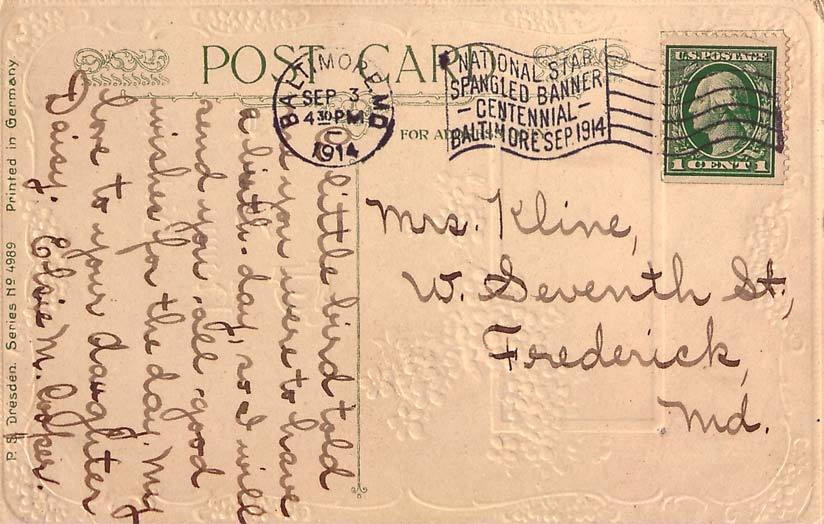 POST CARD
FOR
BALTIMORE, MD
SEP 3
430 PM
1914
NATIONAL STAR
SPANGLED BANNER
CENTENNIAL
BALTIMORE SEP. 1914
U.S. POSTAGE
1 CENT 1
Mrs. Kline,
W. Seventh St.,
Frederick,
Md.
little bird told
you were to have
a birth-day, so I will
send you all good
wishes for the day. My
love to your daughter
Daisy. Elsie N.
P. S. Dresden. Series No 4989 Printed in Germany